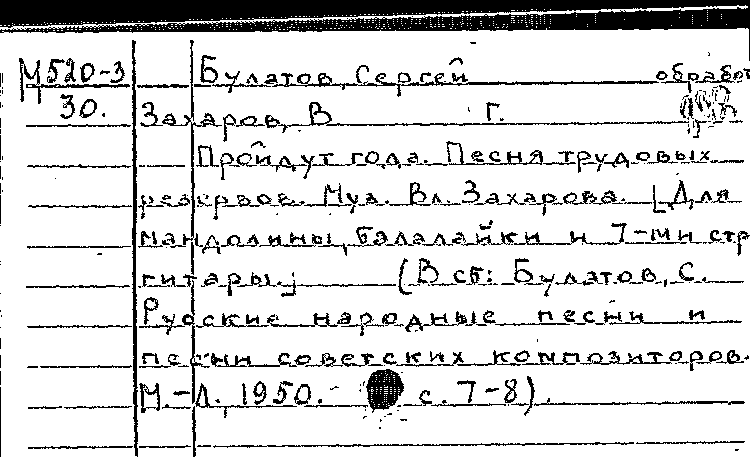 М520-3 Булатов, Сергей обработ
30. Захаров, В Г.
Пройдут года. Песня трудовых
резервов. Муз. Вл. Захарова. [Для
мандолины, балалайки и 7-ми стр
гитары.] (В сб: Булатов, С.
Русские народные песни и
песни советских композиторов.
М.-Л., 1950.- с. 7-8).